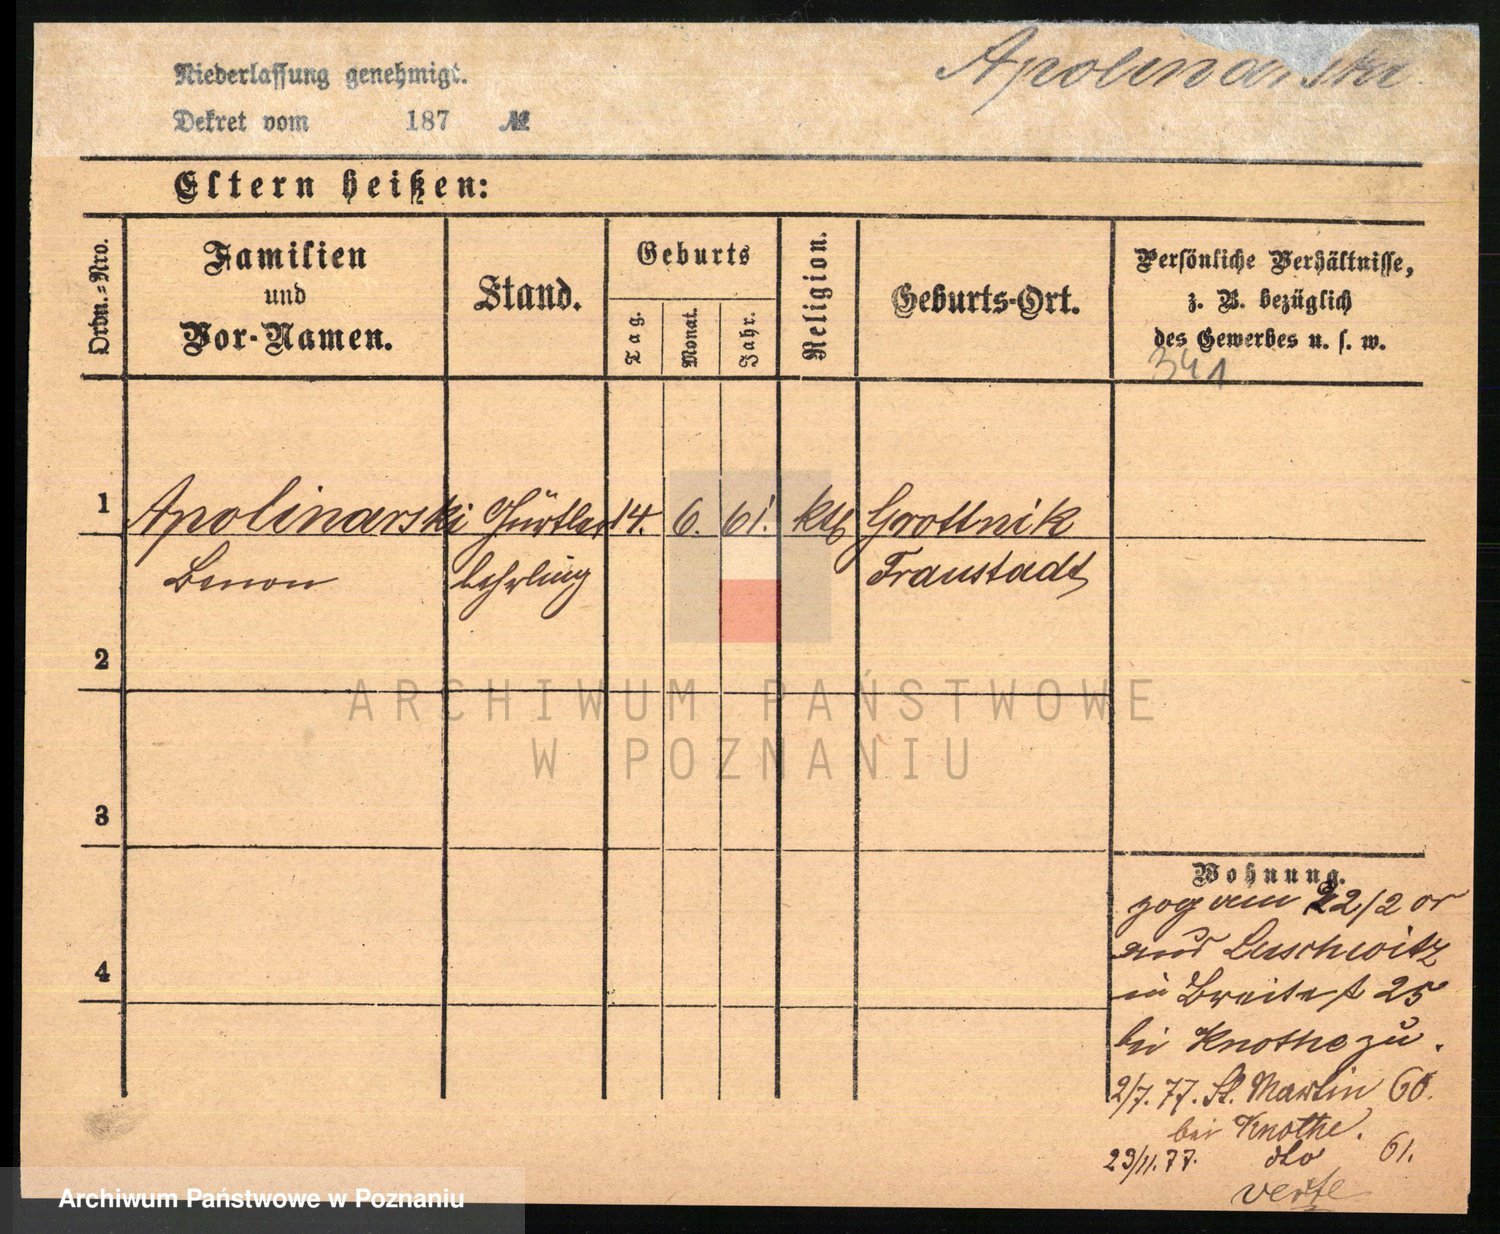 Apolinarski
Niederlassung genehmigt.
Dekret vom 187 №
Eltern heißen:
Ordn.=Nro.
Familien
und
Vor-Namen.
Stand.
Geburts
Tag.
Monat.
Jahr.
Religion.
Geburts-Ort.
Persönliche Verhältnisse,
z. B. bezüglich
des Gewerbes u. s. w.
341
1 Apolinarski Gürtler 14. 6. 61. kth Grottnik
Benon lehrling Fraustadt
2
3
4
Wohnung.
zog am 22/2 cr
aus Luschwitz
in Breitest 25
bei Knothe zu.
2/7. 77. St. Martin 60.
bei Knothe.
29/11. 77. dto 61.
verte
ARCHIWUM PAŃSTWOWE
W POZNANIU
Archiwum Państwowe w Poznaniu